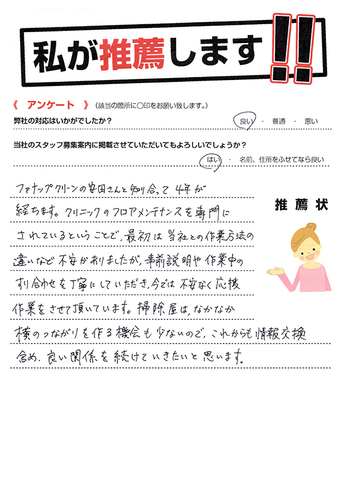 私が推薦します!!
《 アンケート 》（該当の箇所に〇印をお願い致します。）
弊社の対応はいかがでしたか？ 良い ・ 普通 ・ 悪い
当社のスタッフ募集案内に掲載させていただいてもよろしいでしょうか？
はい ・ 名前、住所をふせてなら良い
推薦状
ファナップクリーンの安田さんと知り合って4年が
経ちます。クリニックのフロアメンテナンスを専門に
されているということで、最初は当社との作業方法の
違いなど不安がありましたが、事前説明や作業中の
すり合わせを丁寧にしていただき、今では不安なく応援
作業をさせて頂いています。掃除屋は、なかなか
横のつながりを作る機会も少ないので、これからも情報交換
含め、良い関係を続けていきたいと思います。